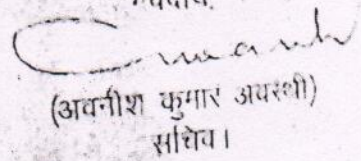 (अवनीश कुमार अवस्थी)
सचिव।